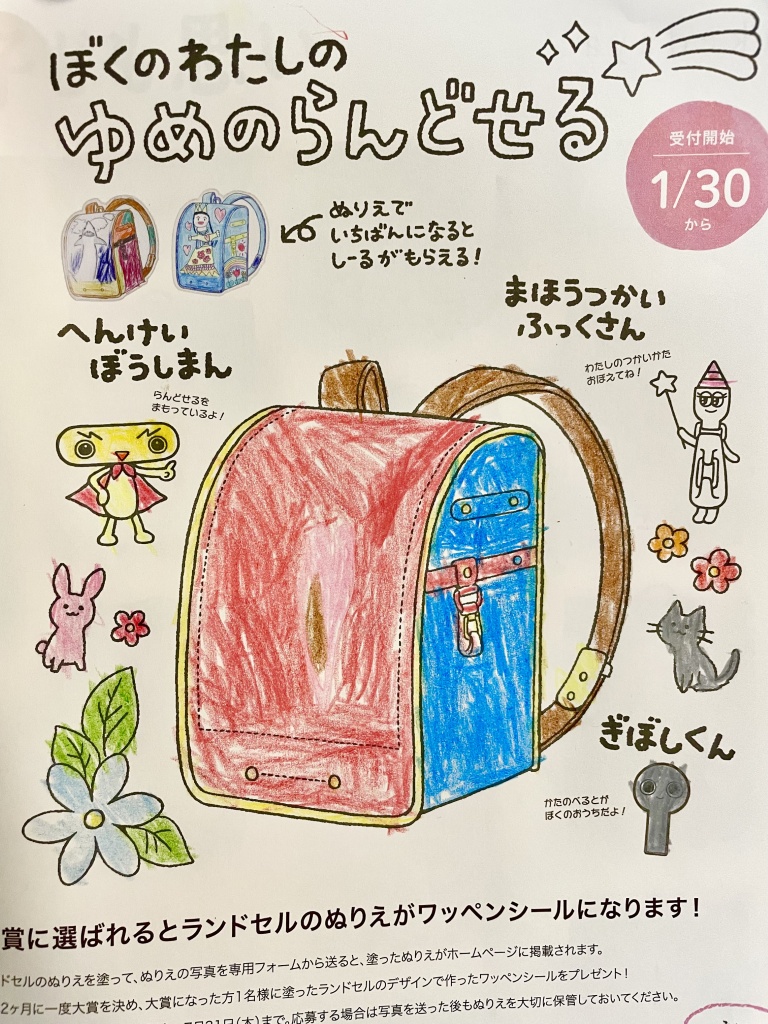 ぼくのわたしの
ゆめのらんどせる
受付開始
1/30
から
ぬりえで
いちばんになると
しーるがもらえる!
まほうつかい
ふっくさん
わたしのつかいかた
おぼえてね!
へんけい
ぼうしまん
らんどせるを
まもっているよ!
ぎぼしくん
かたのべるとが
ぼくのおうちだよ!
賞に選ばれるとランドセルのぬりえがワッペンシールになります!
ドセルのぬりえを塗って、ぬりえの写真を専用フォームから送ると、塗ったぬりえがホームページに掲載されます。
2ヶ月に一度大賞を決め、大賞になった方1名様に塗ったランドセルのデザインで作ったワッペンシールをプレゼント!
21日(木)まで。応募する場合は写真を送った後もぬりえを大切に保管しておいてください。